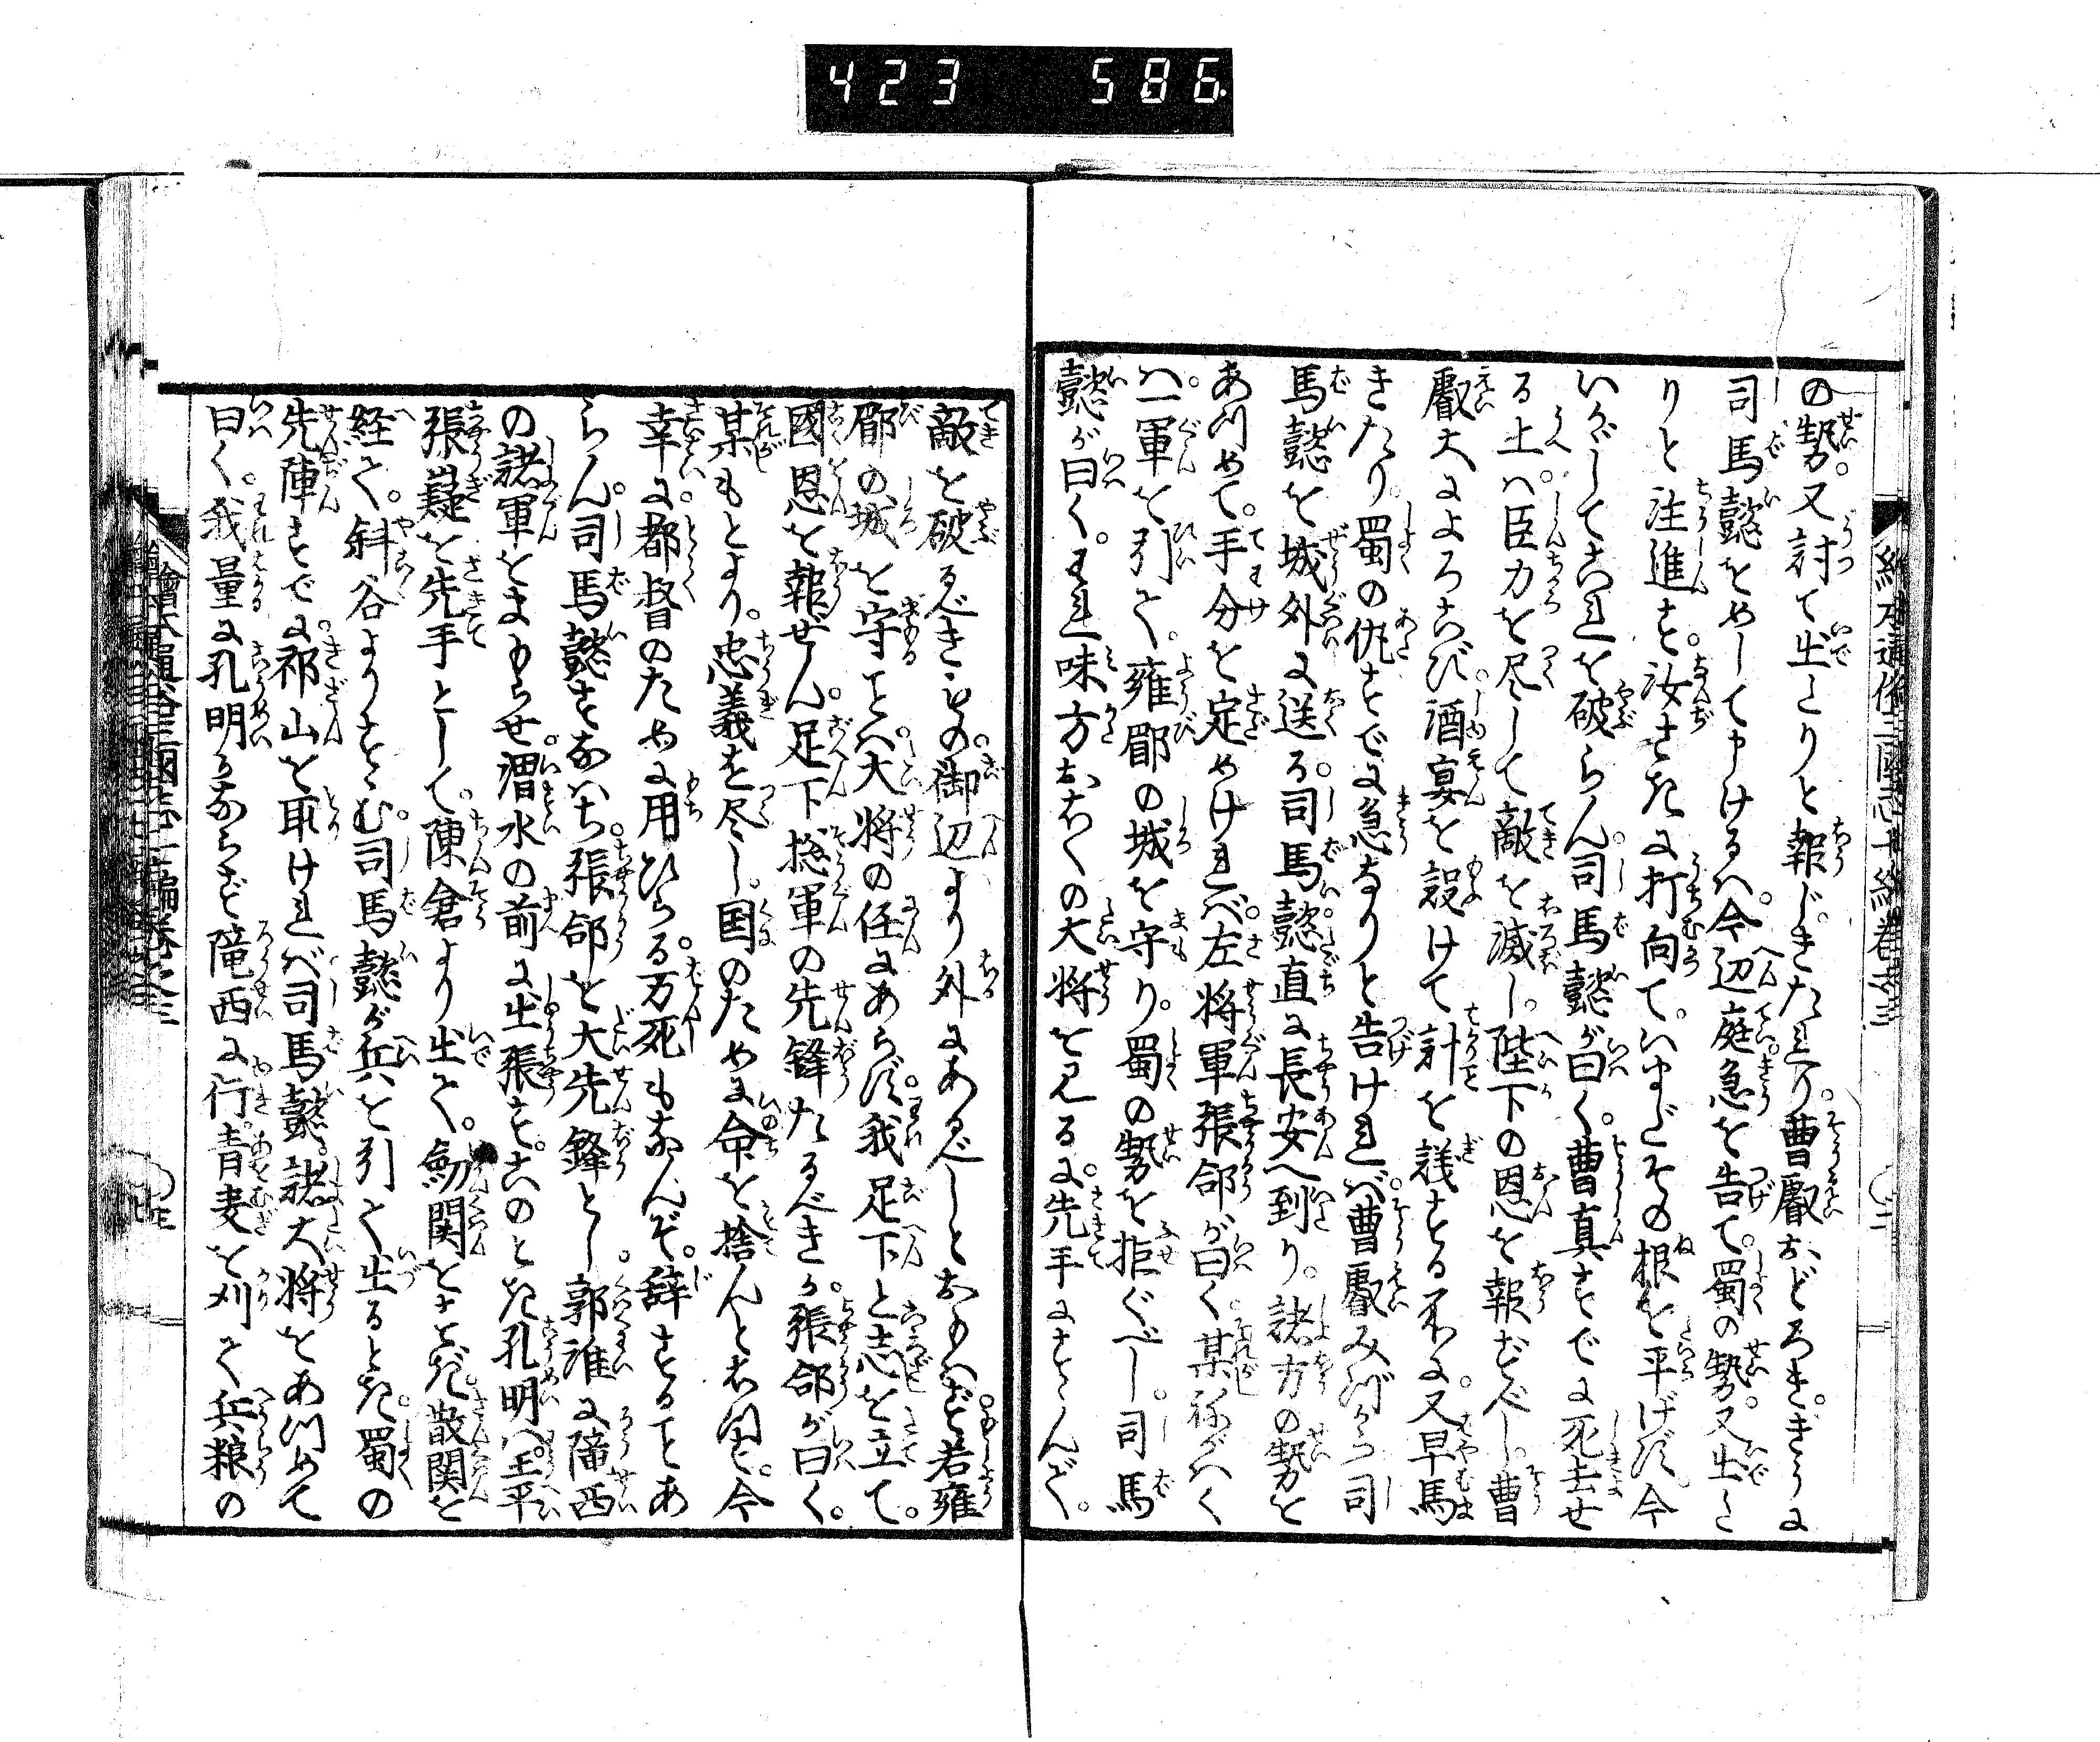 423 586
の勢。又討て出たりと報じきたれり。曹叡おどろき。きうに
司馬懿をめして申けるハ。今辺庭急を告て。蜀の勢。又出た
りと注進す。汝さきに打向て。いまだその根を平げず。今
いかゞしてこれを破らん。司馬懿が曰く。曹真すでに死去せ
る上ハ。臣力を尽して敵を滅し。陛下の恩を報ずべし。曹
叡大によろこび。酒宴を設けて計を議する所に。又早馬
きたり。蜀の仇すでに急なりと告けれバ。曹叡みづから司
馬懿を城外に送る。司馬懿。直に長安へ到り。諸方の勢を
あつめて。手分を定めけれバ。左将軍張郃が曰く。某ねがハく
ハ。一軍を引て。雍郿の城を守り。蜀の勢を拒ぐべし。司馬
懿が曰く。われ味方おほくの大将を見るに。先手にすゝんで。
敵を破るべきもの。御辺より外にあるべしとおもハず。若雍
郿の城を守てハ。大将の任にあらず。我足下と志を立て。
國恩を報ぜん。足下総軍の先鋒たるべきか。張郃が曰く。
某もとより。忠義を尽し。国のために命を捨んとおもふ。今
幸に。都督のために用ひらる。万死もなんぞ。辞することあ
らん。司馬懿すなハち。張郃を大先鋒とし。郭淮に隴西
の諸軍をまもらせ。渭水の前に出張す。このとき孔明ハ。王平
張嶷を先手として。陳倉より出て。剣関をすぎ。散関を
経て。斜谷よりすゝむ。司馬懿が兵を引て出るとき。蜀の
先陣すでに。祁山を取けれバ。司馬懿。諸大将をあつめて
曰く。我量るに孔明かならず隴西に行。青麦を刈て兵粮の